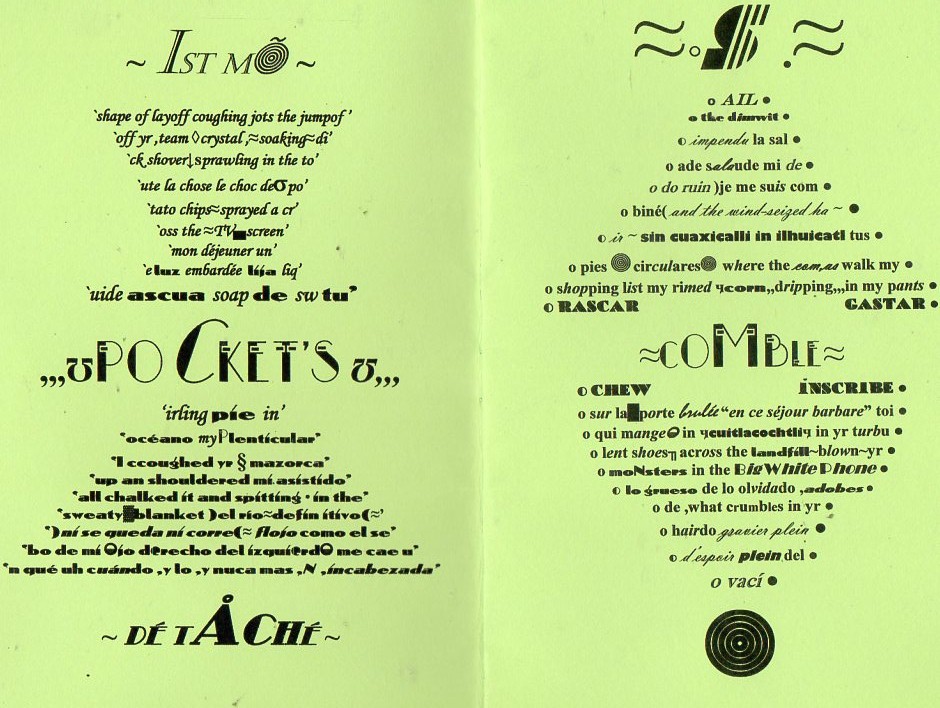 ~ IST MÕ ~
‛shape of layoff coughing jots the jumpof ’
‛off yr ,team ◊crystal ,≈soaking≈di’
‛ck shover↓sprawling in the to’
‛ute la chose le choc deƱ po’
‛tato chips≈sprayed a cr’
‛oss the ≈TV▄screen’
‛mon déjeuner un’
‛e luz embardée lija liq’
‛uide ascua soap de sw tu’
,,,ʊPOCKET'S ʊ,,,
‛irling pie in’
‛océano my Plenticular’
‛I ccoughed yr § mazorca’
‛up an shouldered mi asistido’
‛all chalked it and spitting · in the’
‛sweaty▓blanket )el río≈defin itivo(≈’
‛)ni se queda ni corre(≈ flojo como el se’
‛bo de mi Ojo derecho del izquierdO me cae u’
‛n qué uh cuándo ,y lo ,y nuca mas ,N ,incabezada’
~ DÉ TÅCHÉ ~
≈ o S . ≈
o AIL ●
o the dimwit ●
o impendu la sal ●
o ade salaude mi de ●
o do ruin )je me suis com ●
o biné( and the wind-seized ha ~ ●
o ir ~ sin cuaxicalli in ilhuicatl tus ●
o pies ◎ circulares◎ where the comas walk my ●
o shopping list my rimed ɥcorn,,dripping,,,in my pants ●
o RASCAR GASTAR ●
≈COMBLE≈
o CHEW INSCRIBE ●
o sur la▓porte brulée “en ce séjour barbare” toi ●
o qui mangeO in ɥcuitlacochtliɥ in yr turbu ●
o lent shoes┐ across the landfill~blown~yr ●
o moNsters in the Big White Phone ●
o lo grueso de lo olvidado ,adobes ●
o de ,what crumbles in yr ●
o hairdo gravier plein ●
o d'espoir plein del ●
o vací ●